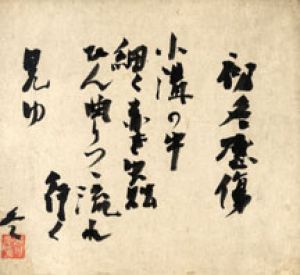 初冬感傷
小溝の中
細く赤き
ひん曲りつゝ流れ
行く
見ゆ